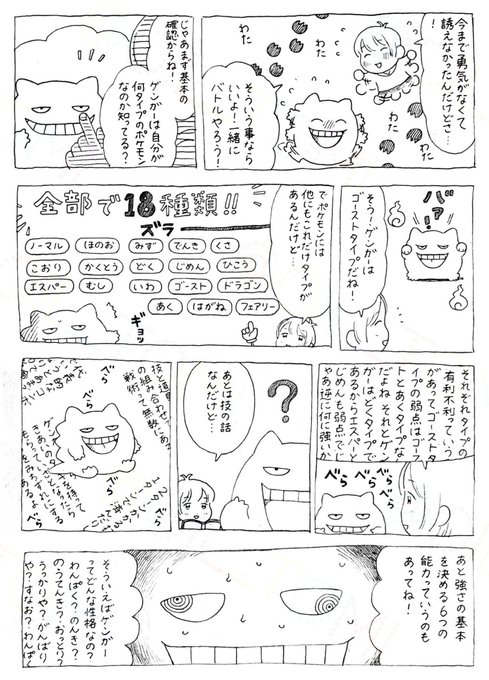 今まで勇気がなくて
誘えなかったんだけどさ…
！
わた
わた
わた
わた
そういう事なら
いいよ！一緒に
バトルやろう！
じゃあまず基本の
確認からね！
ゲンガーは自分が
何タイプのポケモン
なのか知ってる？
バァ！
そう！ゲンガーは
ゴーストタイプだね！
でポケモンには
他にもこれだけタイプが
あるんだけど…
全部で18種類!!
ズラ
ノーマル ほのお みず でんき くさ
こおり かくとう どく じめん ひこう
エスパー むし いわ ゴースト ドラゴン
あく はがね フェアリー
ギョッ
それぞれタイプの
有利不利っていう
があってゴースト
イプの弱点はゴース
トとあくタイプな
だよね それとゲン
ガーはどくタイプで
あるからエスパー
じめんも弱点でじ
ゃあ逆に何に強いか
べら
べら
べら
べら
？
あとは技の話
なんだけど…
技と道具
の組み合わせ
戦術って無数にあ
べら
べら
べら
べら
あと強さの基本
を決める6つの
能力っていうのも
あってね！
そういえばゲンガー
ってどんな性格なの？
わんぱく？のんき？
のうてんき？おっとり？
うっかりや？がんばり
や？すなお？わんぱく